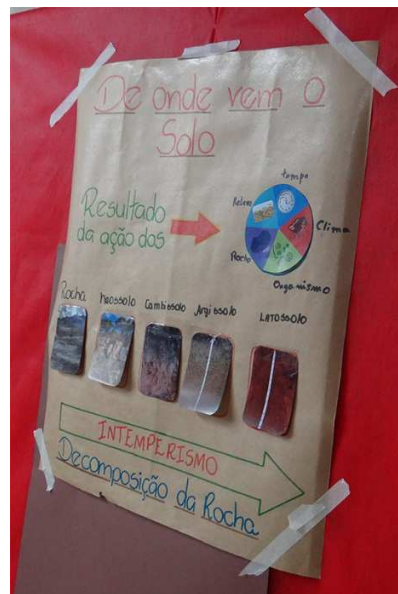 De onde vem o
Solo
Resultado
da ação dos
tempo
Relevo
Clima
Organismo
Rocha
Neossolo
Cambissolo
Argissolo
LATOSSOLO
INTEMPERISMO
Decomposição da Rocha